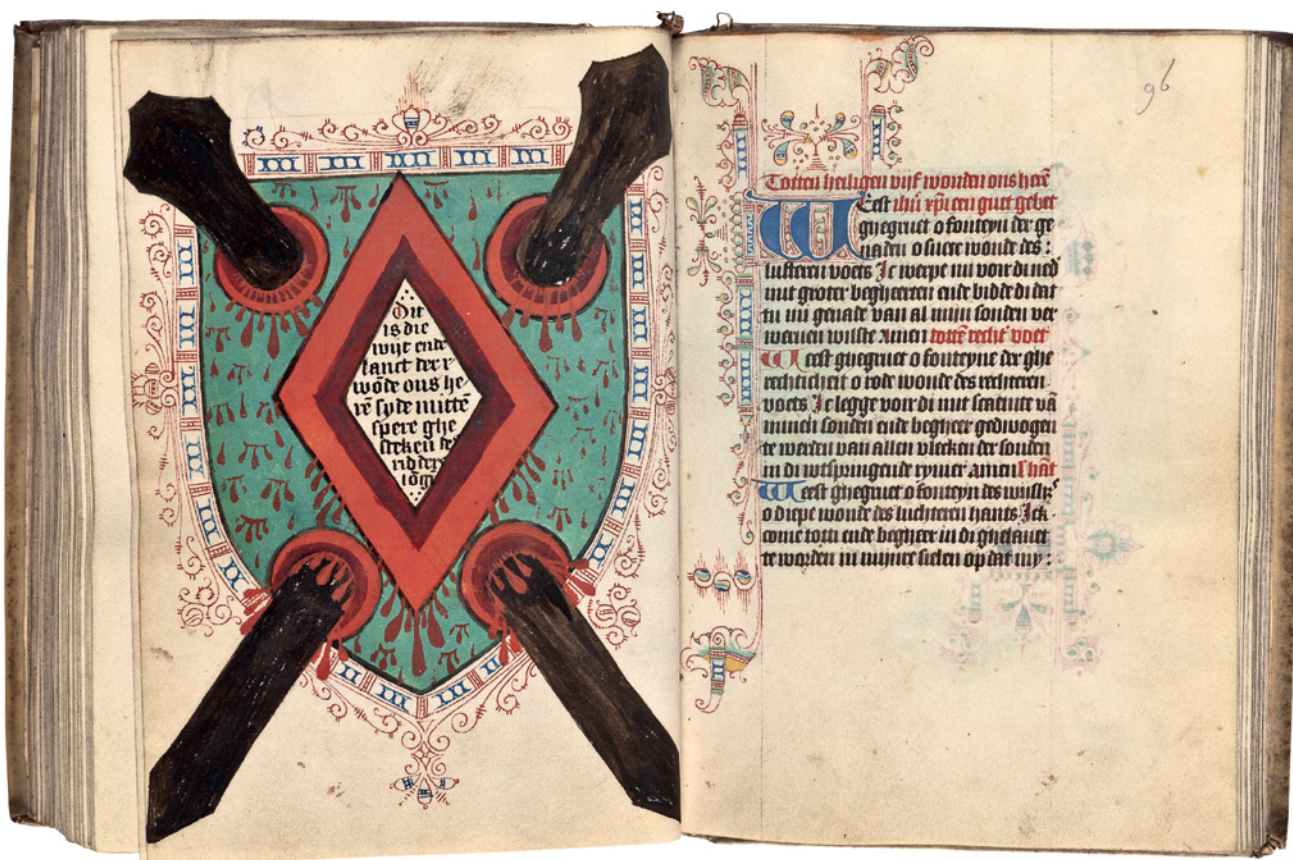 Dit
is die
wijt ende
lanct der r
wōde ons he-
rē syde mittē
spere ghe
steken des
ridders
lōgī
96
Totten heiligen vijf wonden ons herē
Eest ihū xp̄i een guet gebet
W ghegruet o fonteyn der ge
naden o suete wonde des :
lufteren voets Ic werpe mi voir di ned
mit groter begheeren ende bidde di dat
tu mi genade van al mijn sonden ver
weruen wilste Amen totten recht voet
Weest ghegruet o fonteyne der ghe
rechticheit o rode wonde des rechteren
voets Ic legge voir di mit scaemte vā
mineh sonden ende begheer gedwogen
te werden van allen vlecken der sonden
in di wtspringende ryuier amen l hāt
Weest ghegruet o fonteyn des wijsh
o diepe wonde des luchteren hants Ick
come tot di ende begheer in di ghelauet
te worden in mijnre sielen op dat my :